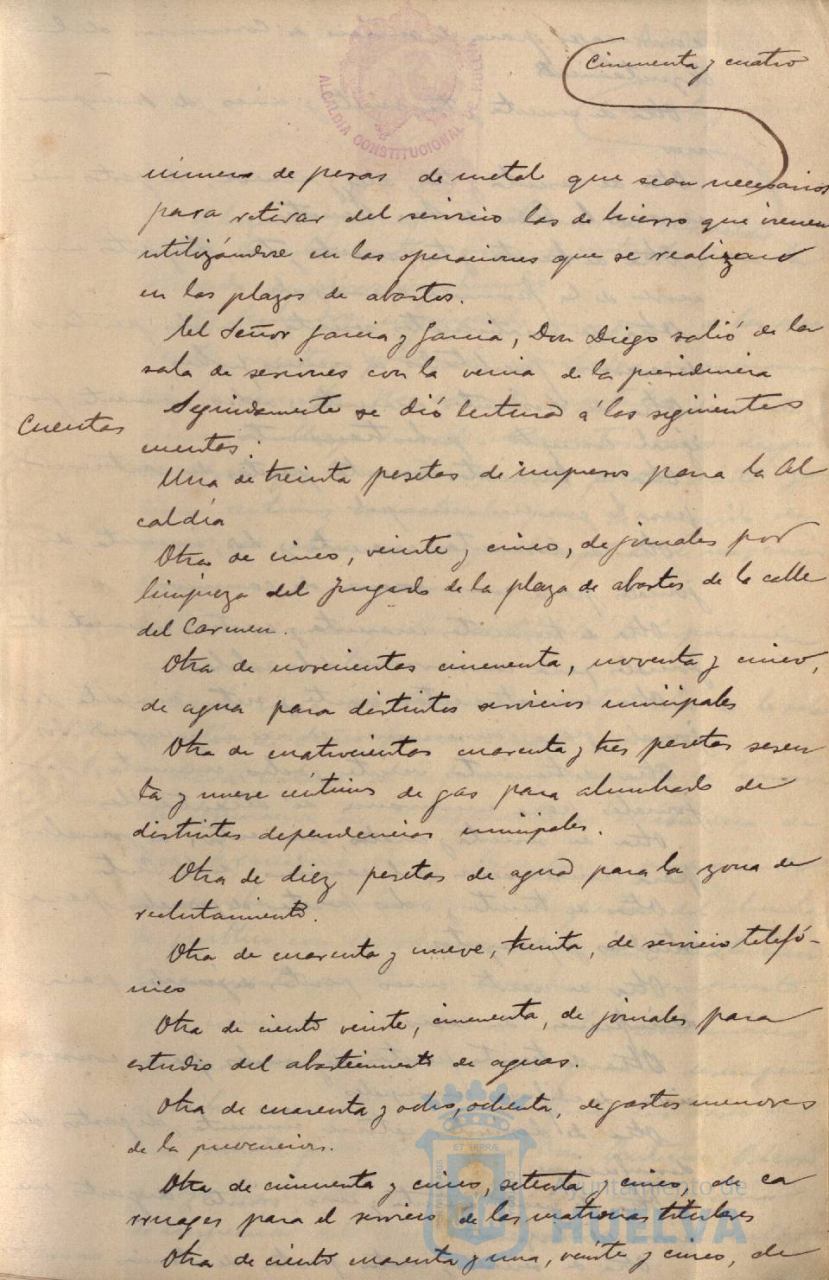 ALCALDIA CONSTITUCIONAL DE HUELVA
Cincuenta y cuatro
número de pesas de metal que sean necesarios
para retirar del servicio las de hierro que vienen
utilizándose en las operaciones que se realizan
en las plazas de abastos.
El Señor Garcia y Garcia, Don Diego salió de la
sala de sesiones con la venia de la presidencia
Cuentas
Seguidamente se dió lectura á las siguientes
cuentas:
Una de treinta pesetas de impresos para la Al
caldía
Otra de cinco, veinte y cinco, de jornales por
limpieza del Juzgado de la plaza de abastos de la calle
del Carmen.
Otra de novecientas cincuenta, noventa y cinco,
de agua para distintos servicios municipales
Otra de cuatrocientas cuarenta y tres pesetas sesen
ta y nueve céntimos de gas para alumbrado de
distintas dependencias municipales.
Otra de diez pesetas de agua para la zona de
reclutamiento.
Otra de cuarenta y nueve, treinta, de servicio telefó-
nico
Otra de ciento veinte, cincuenta, de jornales para
estudio del abastecimiento de aguas.
Otra de cuarenta y ocho, ochenta, de gastos menores
de la prevencion.
Otra de cincuenta y cinco, setenta y cinco, de ca
rruages para el servicio de las matronas titulares
Otra de ciento cuarenta y una, veinte y cinco, de
Ayuntamiento de
HUELVA